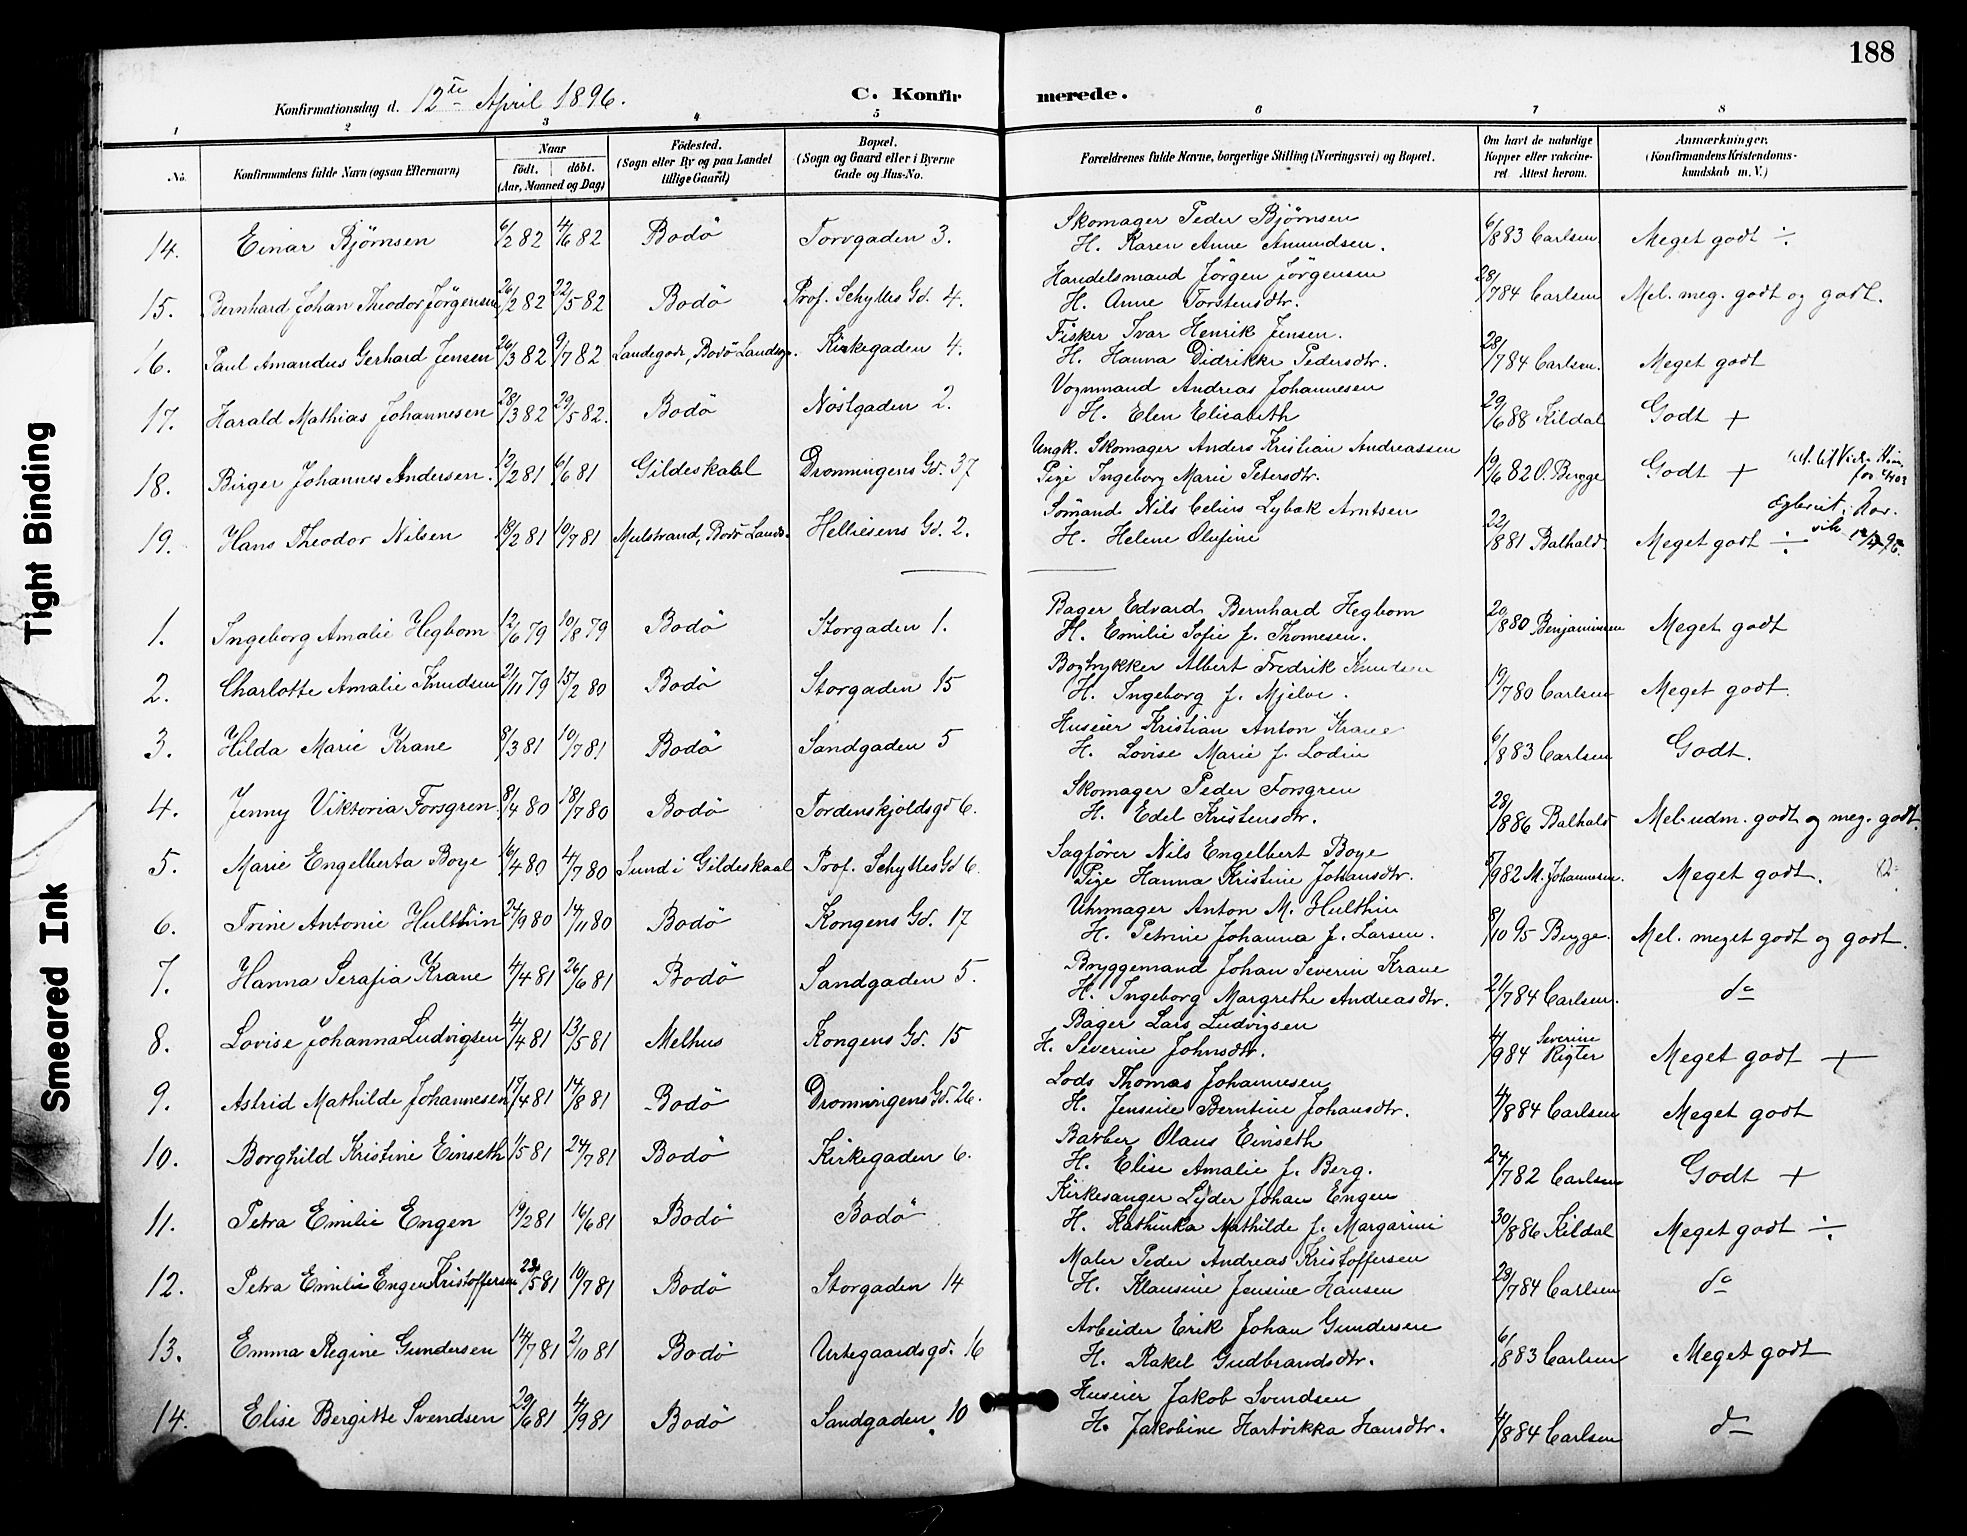 188
Konfirmationsdag d. 12te April 1896.
C. Konfirmerede.
1 2 3 4 5 6 7 8
No.
Konfirmandens fulde Navn (ogsaa Efternavn)
Naar
födt. döbt.
(Aar, Maaned og Dag)
Födested.
(Sogn eller By og paa Landet
tillige Gaard)
Bopæl.
(Sogn og Gaard eller i Byerne
Gade og Hus-No.
Forældrenes fulde Navne, borgerlige Stilling (Næringsvei) og Bopæl.
Om havt de naturlige
Kopper eller vakcine-
ret. Attest herom.
Anmærkninger.
(Konfirmandens Kristendoms-
kundskab m. V.)
14. Einar Bjørnsen 6/2 82 4/6 82 Bodö Torvgaden 3. Skomager Peder Bjørnsen
H. Karen Anne Amundsen. 6/8 83 Carlsen. Meget godt ÷
15. Bernhard Johan Theodor Jørgensen 26/2 82 22/5 82 Bodö Prof. Schyttes Gd. 4. Handelsmand Jørgen Jørgensen
H. Anne Torstensdtr. 28/7 84 Carlsen Mel. meg. godt og godt.
16. Paul Amandus Gerhard Jensen 26/3 82 9/7 82 Landegode, Bodö Landsogn. Kirkegaden 4. Fisker Ivar Henrik Jensen.
H. Hanna Didrikke Pedersdtr. 28/7 84 Carlsen. Meget godt
17. Harald Mathias Johannesen 28/3 82 29/5 82. Bodö Nöstgaden 2. Vognmand Andreas Johannesen
H. Elen Elisabeth 29/6 88 Kildal Godt +
18. Birger Johannes Andersen 12/2 81 6/6 81 Gildeskaal Dronningens Gd. 37 Ungk. Skomager Anders Kristian Andreassen
Pige Ingeborg Marie Petersdtr. 19/6 82 O. Bugge Godt +
19. Hans Theodor Nilsen 18/2 81 10/7 81 Mulstrand, Bodö Lands. Helliesens Gd. 2. Sömand Nils Celius Lybæk Arntsen
H. Helene Olufine 22/8 81 Balhald. Meget godt ÷
1. Ingeborg Amalie Hegbom 12/6 79 10/8 79 Bodö Storgaden 1. Bager Edvard Bernhard Hegbom
H. Emilie Sofie f. Thomesen. 20/8 80 Benjaminsen Meget godt
2. Charlotte Amalie Knudsen 21/11 79 15/2 80 Bodö Storgaden 15 Bogtrykker Albert Fredrik Knudsen
H. Ingeborg f. Mjelve. 19/7 80 Carlsen Meget godt.
3. Hilda Marie Krane 8/3 81 10/7 81 Bodö Sandgaden 5 Huseier Kristian Anton Krane
H. Lovise Marie f. Lodin 6/8 83 Carlsen Godt.
4. Jenny Viktoria Forsgren 8/4 80 18/7 80 Bodö Tordenskjoldsgd 6. Skomager Peder Forsgren
H. Edel Kristensdtr. 28/8 86 Balhald Mel. udm. godt og meg. godt.
5. Marie Engelberta Boye 16/4 80 4/7 80 Sund i Gildeskaal Prof. Schyttes Gd 6. Sagförer Nils Engelbert Boye
Pige Hanna Kristine Johansdtr. 5/9 82 M. Johannesen. Meget godt.
6. Trine Antonie Hulthin 24/9 80 14/11 80 Bodö Kongens Gd. 17 Uhrmager Anton M. Hulthin
H. Petrine Johanna f. Larsen. 8/10 95 Bugge. Mel. meget godt og godt.
7. Hanna Serafia Krane 4/4 81 26/6 81 Bodö Sandgaden 5. Bryggemand Johan Severin Krane
H. Ingeborg Margrethe Andreasdtr. 21/7 84 Carlsen. do
8. Lovise Johanna Ludvigsen 4/4 81 13/5 81 Melhus Kongens Gd. 15 Bager Lars Ludvigsen
H. Severine Johnsdtr. 4/9 84 Severine Rigter Meget godt +
9. Astrid Mathilde Johannesen 17/4 81 14/8 81 Bodö Dronningens Gd. 26. Lods Thomas Johannesen
H. Jensine Berntine Johansdtr. 4/8 84 Carlsen Meget godt
10. Borghild Kristine Einseth 1/5 81 24/7 81 Bodö Kirkegaden 6. Barber Olaus Einseth
H. Elise Amalie f. Berg. 24/7 82 Carlsen Godt +
11. Petra Emilie Engen 19/2 81 16/6 81 Bodö Bodö Kirkesanger Lyder Johan Engen
H. Kathinka Mathilde f. Margarini 30/8 86 Kildal Meget godt ÷
12. Petra Emilie Engen Kristoffersen 23/5 81 10/7 81 Bodö Storgaden 14 Maler Peder Andreas Kristoffersen
H. Klausine Jensine Hansen 28/7 84 Carlsen do
13. Emma Regine Gundersen 14/7 81 2/10 81 Bodö Urtegaardsgd. 16 Arbeider Erik Johan Gundersen
H. Rakel Gudbrandsdtr. 6/8 83 Carlsen Meget godt
14. Elise Bergitte Svendsen 29/6 81 4/9 81 Bodö Sandgaden 10 Huseier Jakob Svendsen
H. Jakobine Hartvikka Hansdtr. 4/8 84 Carlsen do
Tight Binding
Smeared Ink